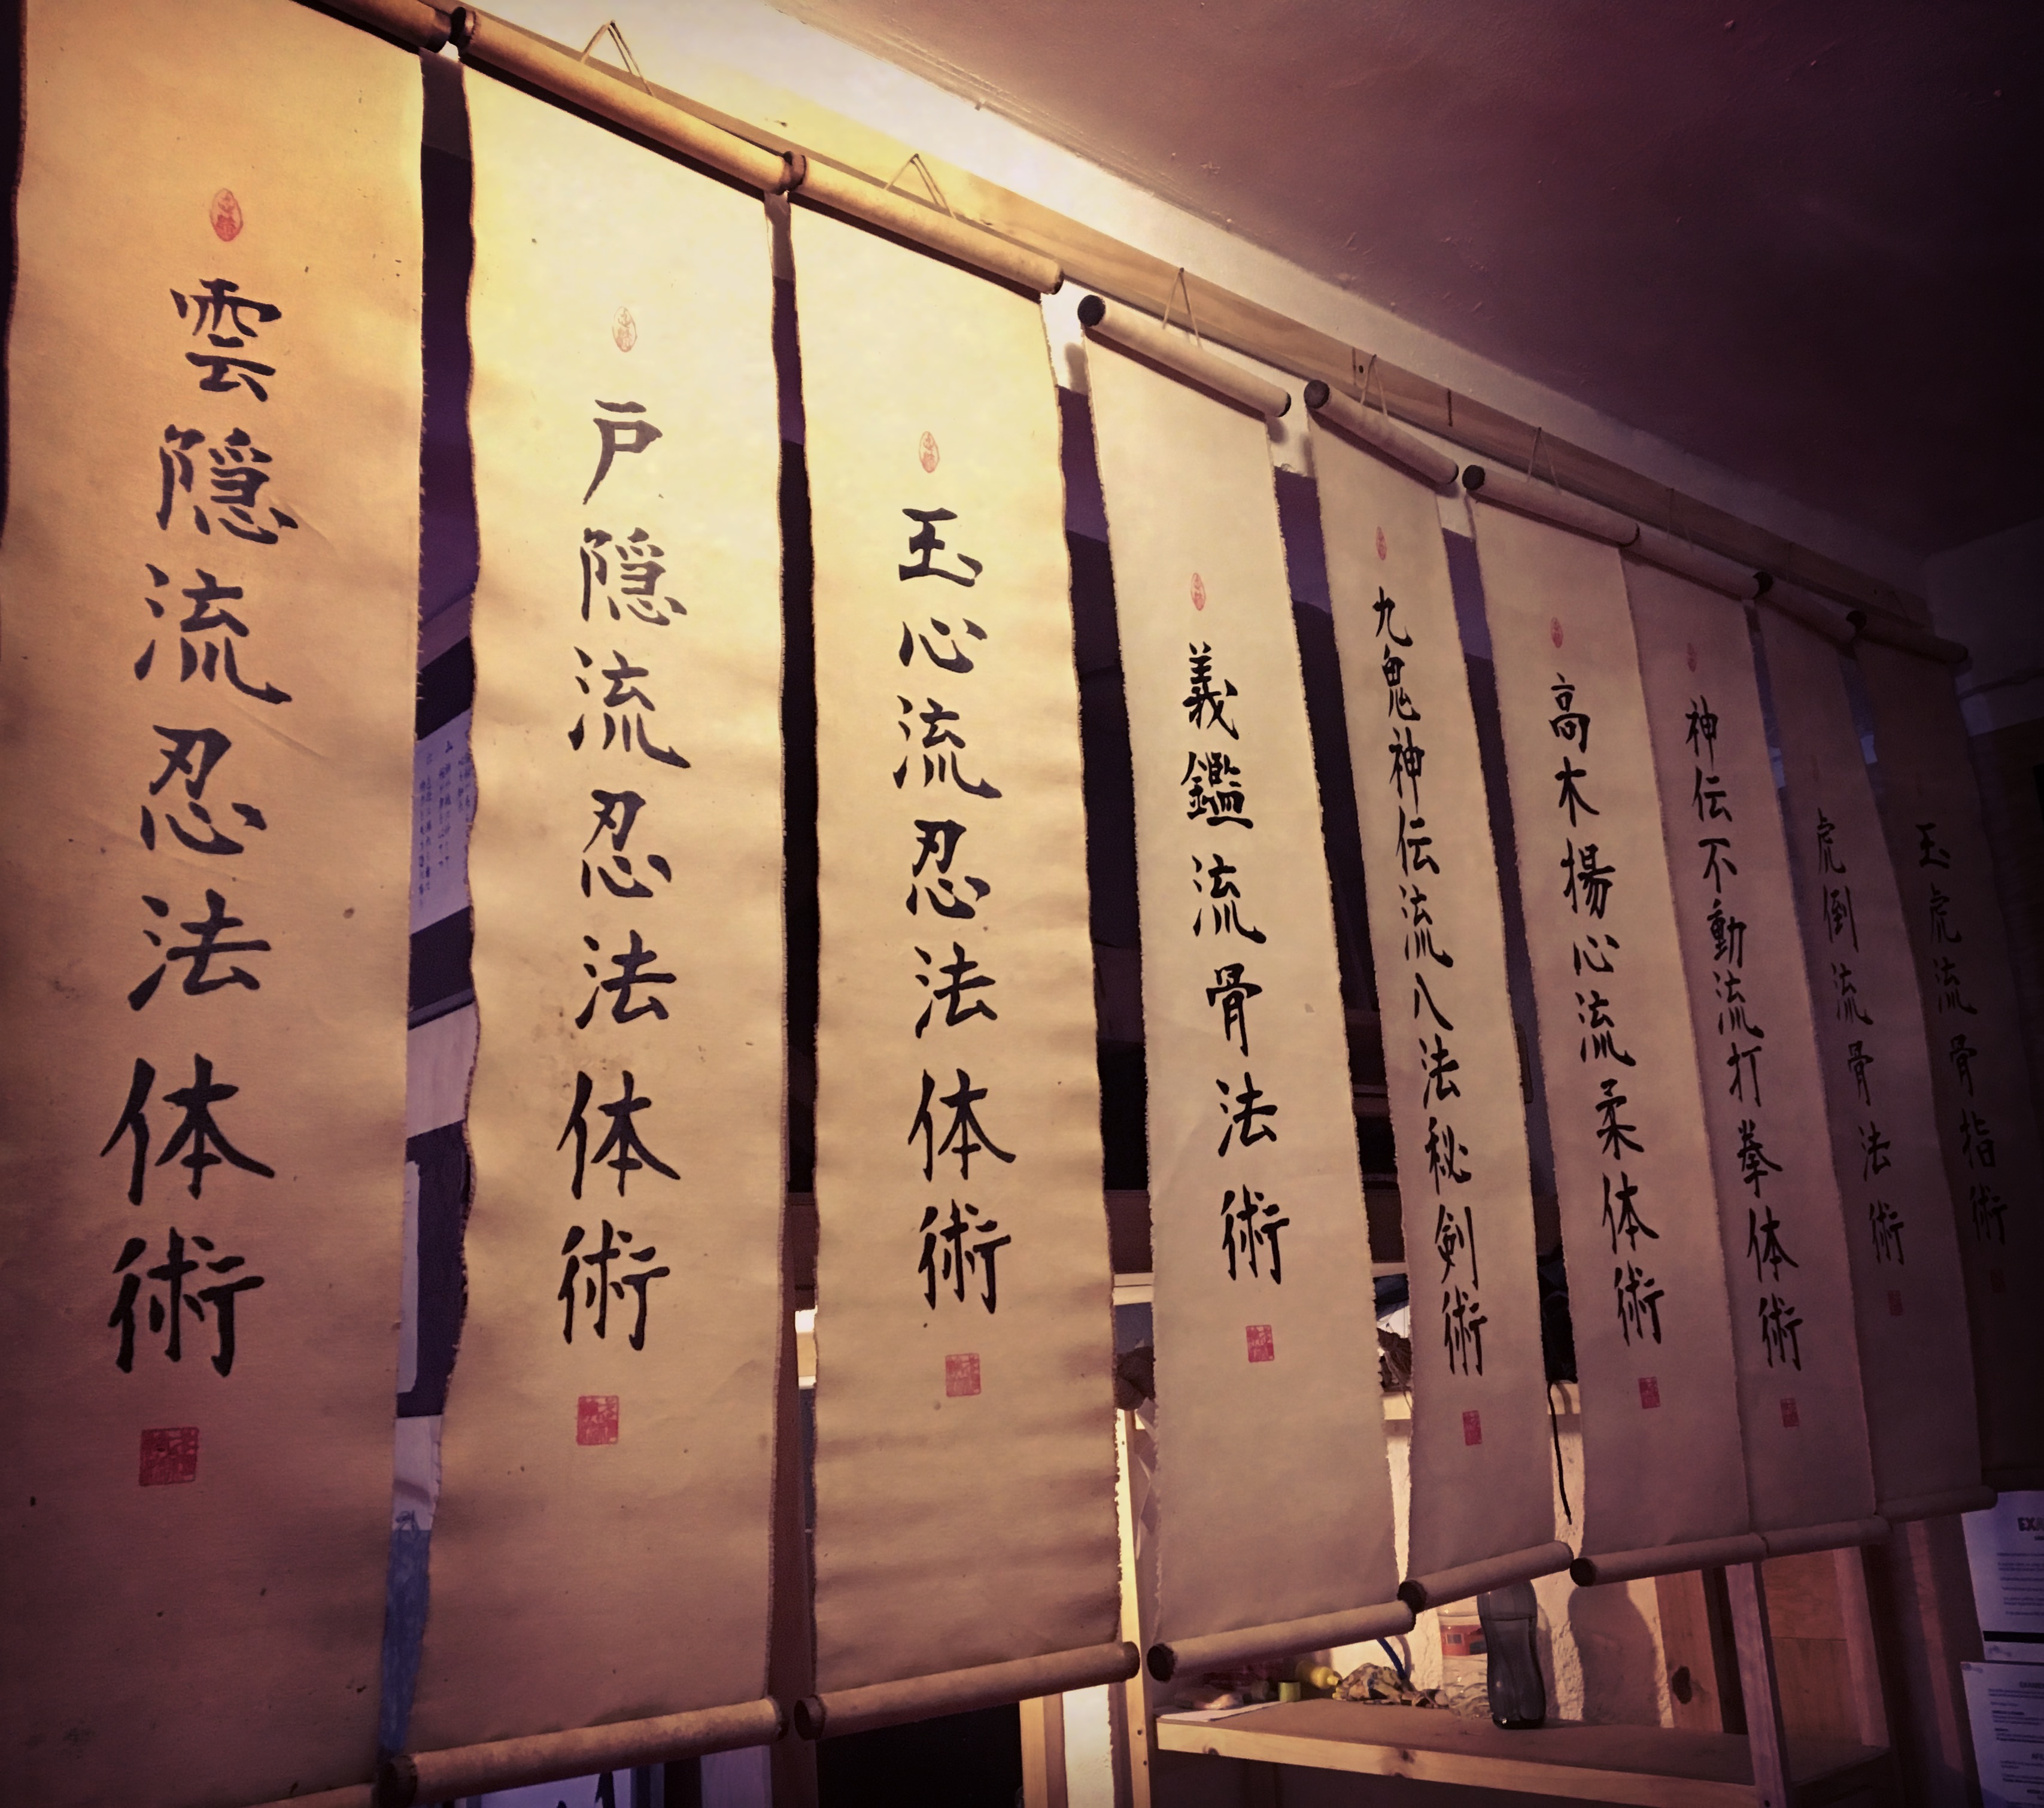 玉虎流骨指術
虎倒流骨法術
神伝不動流打拳体術
高木揚心流柔体術
九鬼神伝流八法秘剣術
義鑑流骨法術
玉心流忍法体術
戸隠流忍法体術
雲隠流忍法体術